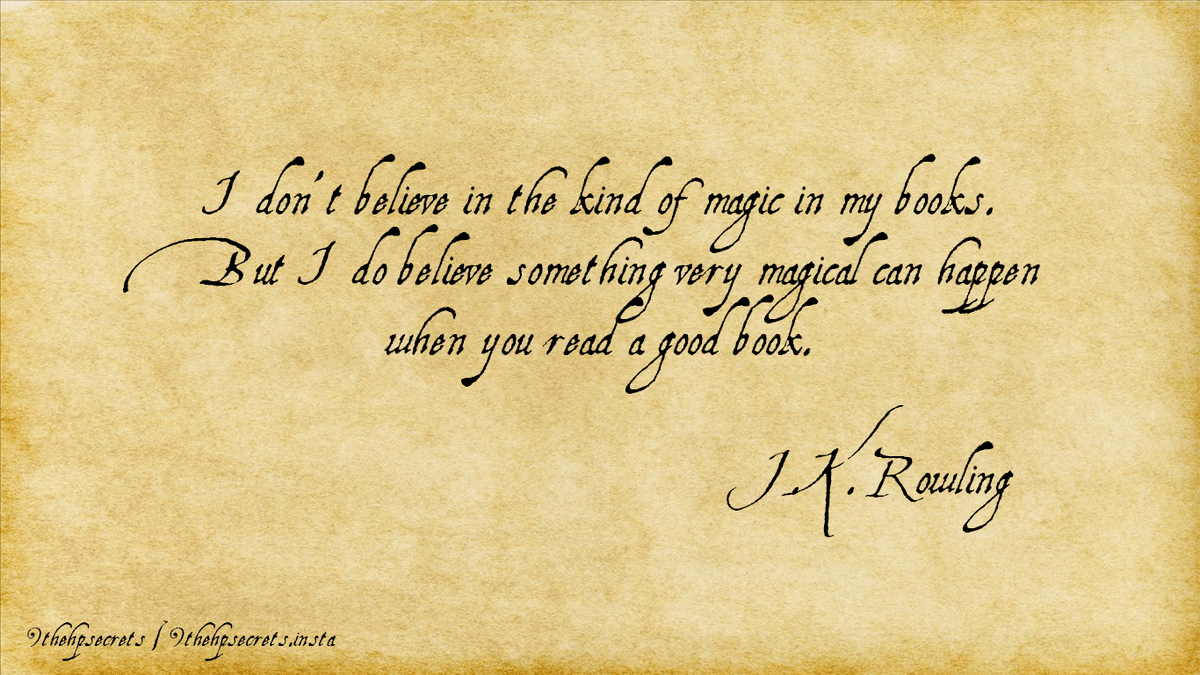 I don't believe in the kind of magic in my books.
But I do believe something very magical can happen
when you read a good book.
J.K. Rowling
@thehpsecrets / @thehpsecrets.insta